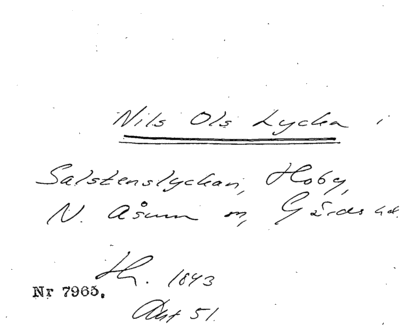 Nils Ols Lycka i
Salstenslyckan, Hoby,
N. Åsum sn, Gärds hd.
Hr. 1843
Nr 7965.
Akt 51.